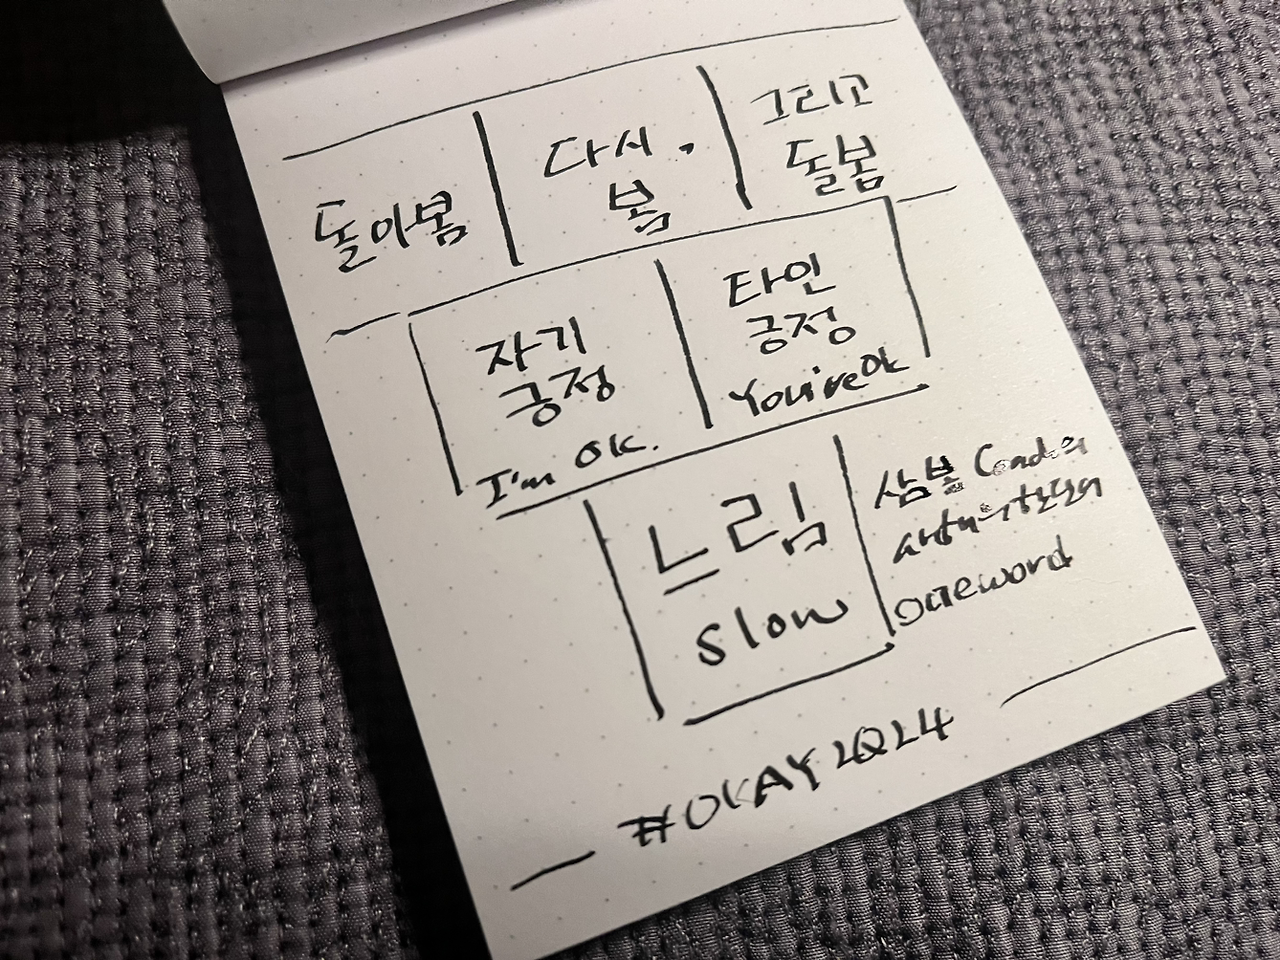 돌아봄
다시,
봄
그리고
돌봄
자기
긍정
I'm OK.
타인
긍정
You're Ok
느림
slow
삼봄 Card의
oneword
#OKAY